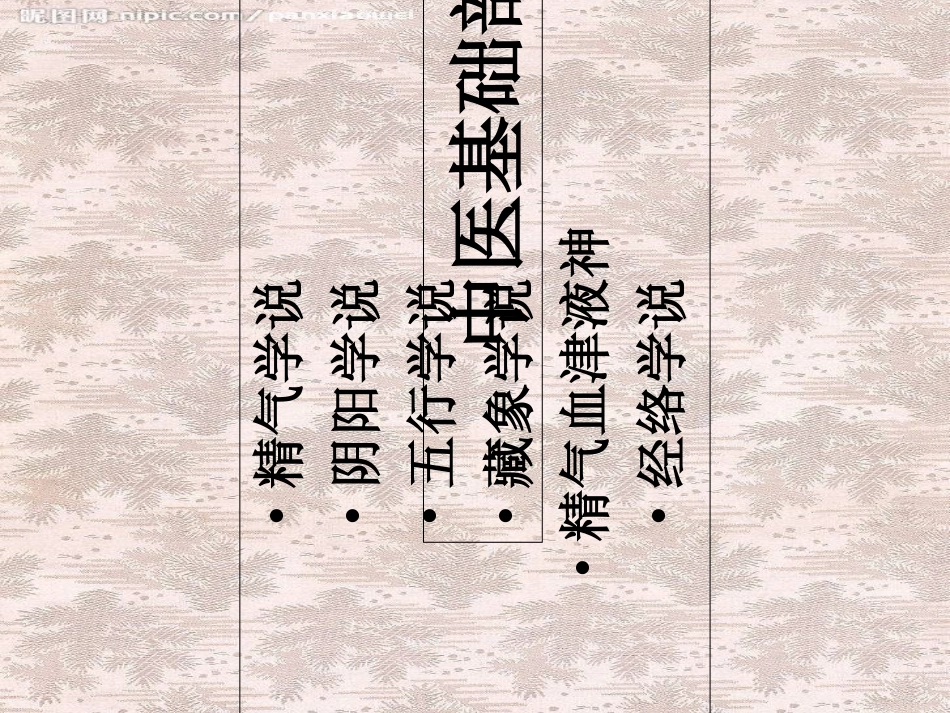 昵图网 nipic.com/panxiaowei
中医基础部
精气学说
阴阳学说
五行学说
藏象学说
精气血津液神
经络学说